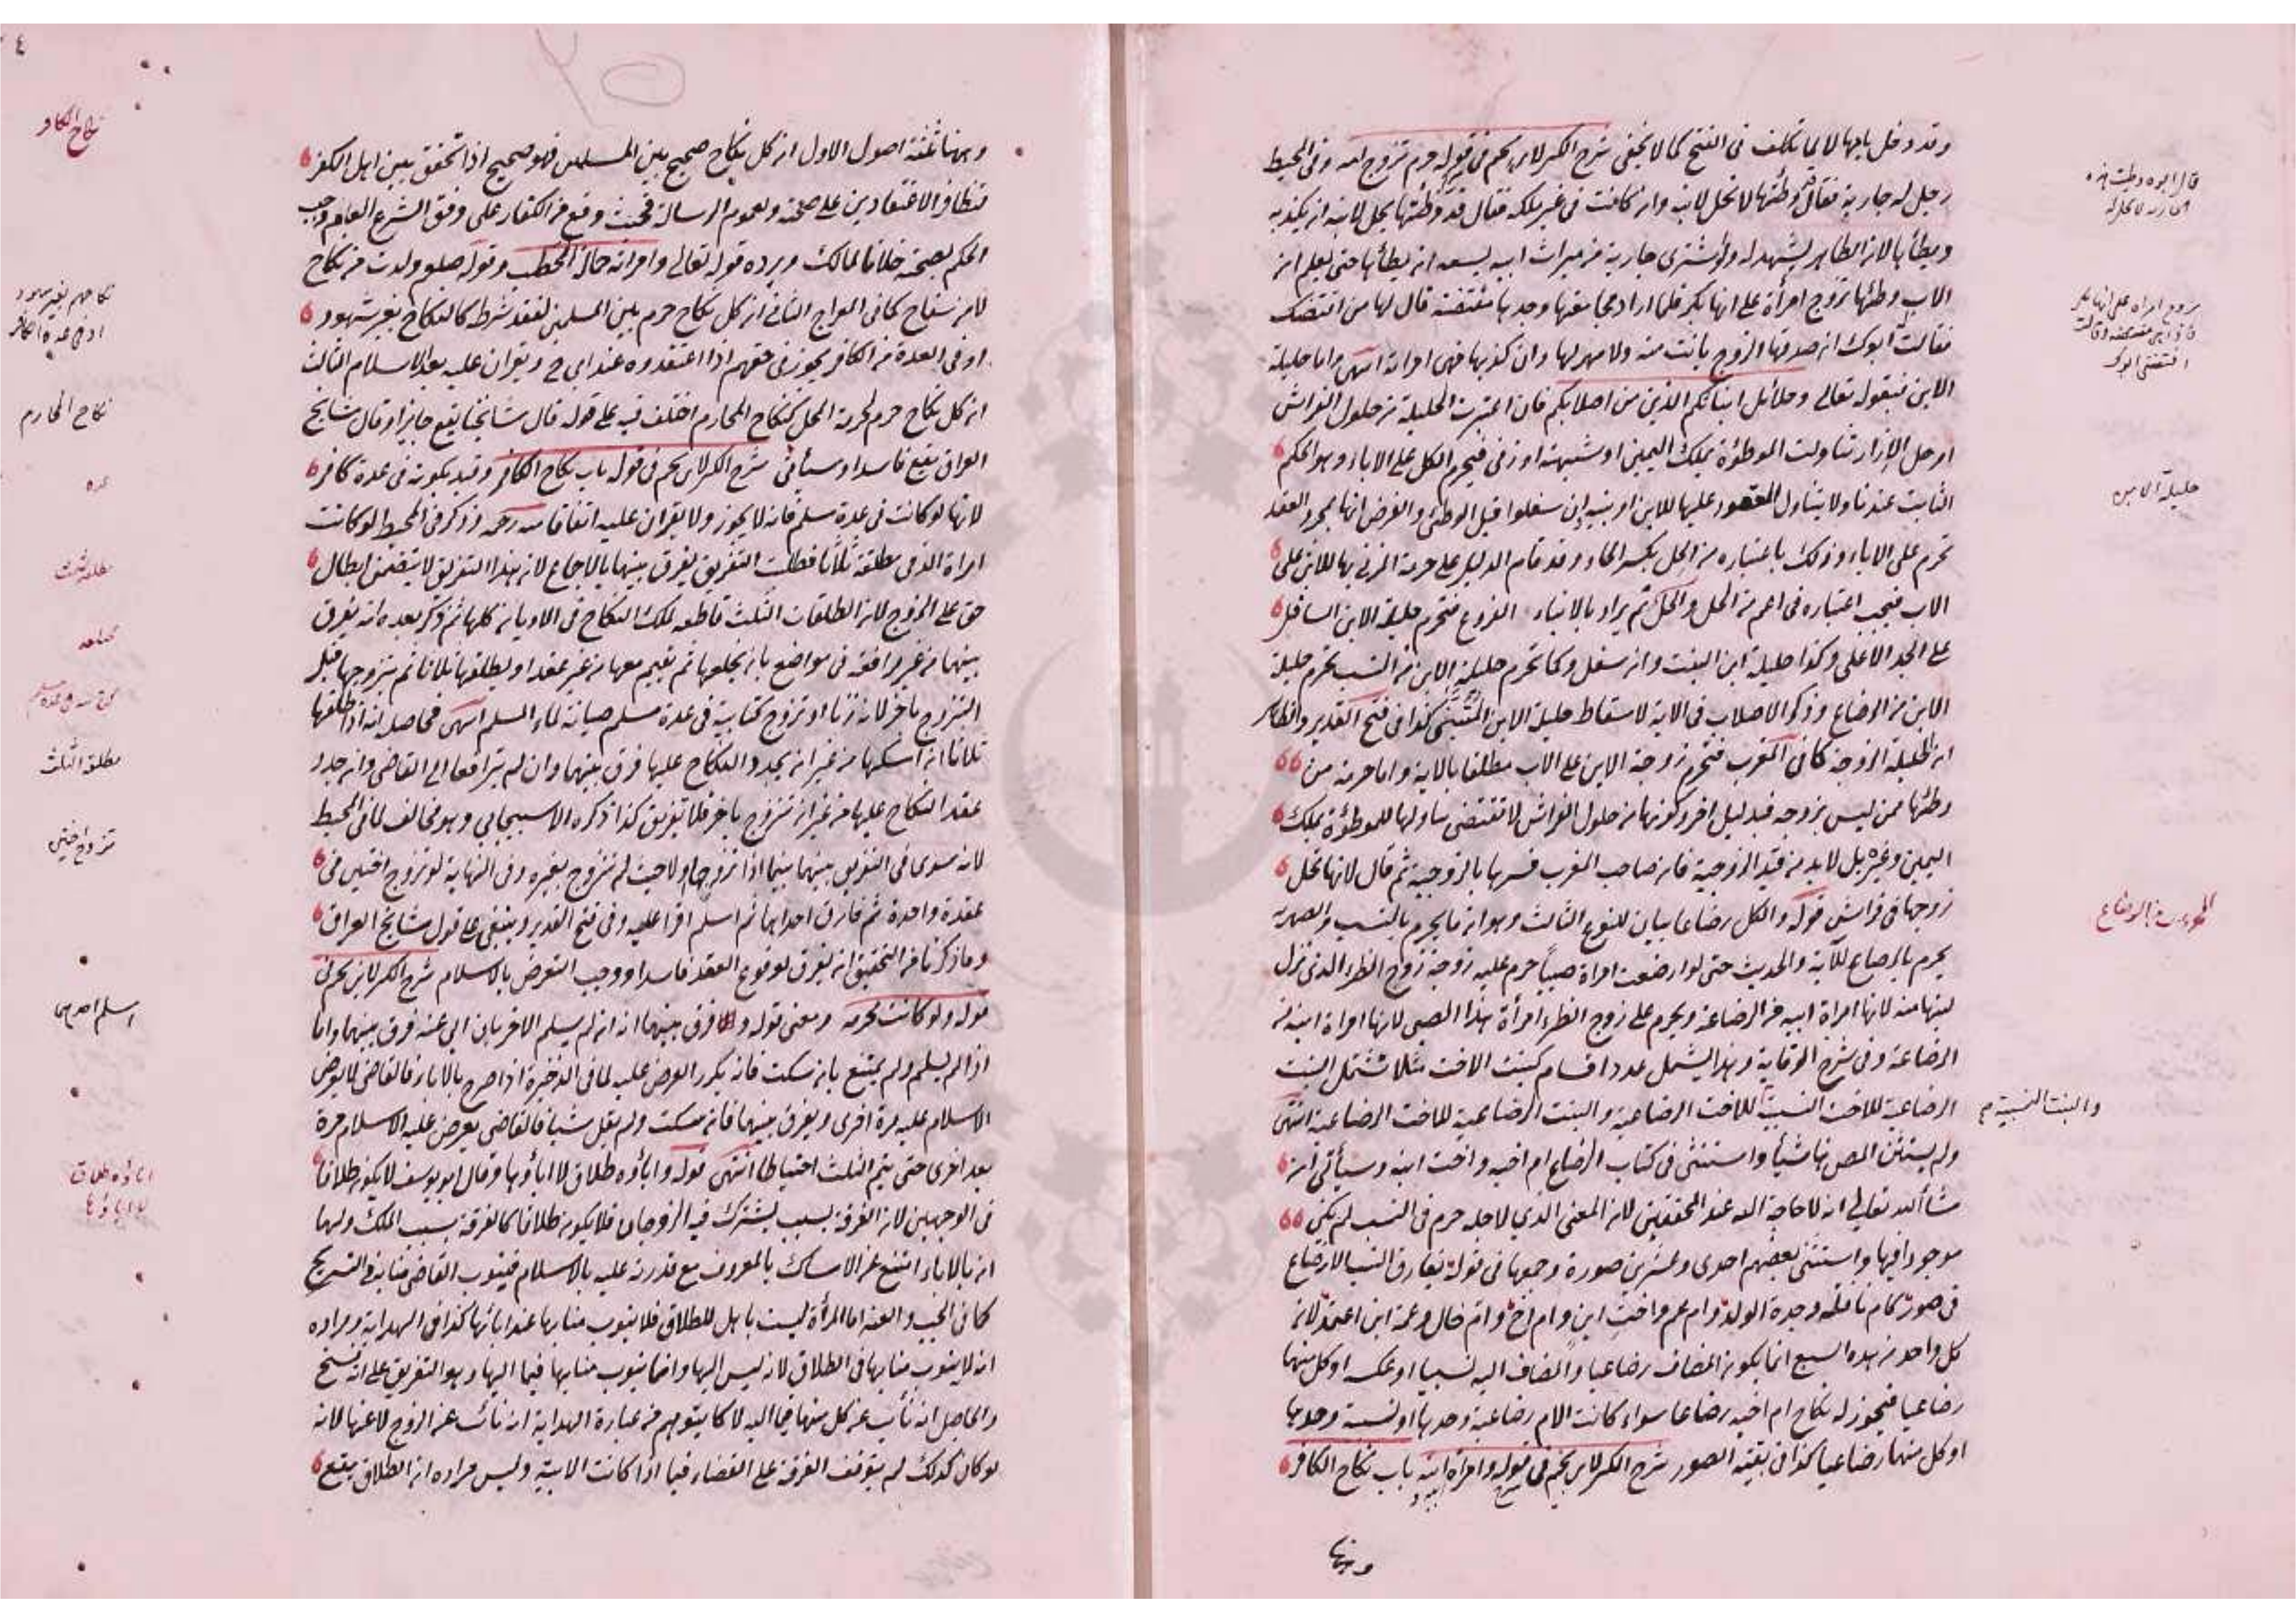 وقد دخل بامها لا لما تكلف فى الفتح كما لا يخفى شرح الكنز لابن نجيم فى قوله حرم تزوج امه وفى المحيط
رجل له جارية فقال قد وطئتها لا تحل لابنه وان كانت فى غير ملكه فقال قد وطئتها يحل لابنه ان يكذبه
ويطأها لان الظاهر يشهد له ولو اشترى جارية من ميراث ابيه يسعه ان يطأها حتى يعلم ان
الاب وطئها تزوج امرأة على انها بكر فلما اراد مجامعتها وجدها مفتضة قال لها من افتضك
فقالت ابوك ان صدقها الزوج بانت منه ولا مهر لها وان كذبها فهى امراته انتهى واما حليلة
الابن فبقوله تعالى وحلائل ابنائكم الذين من اصلابكم فان اعتبرت الحليلة من حلول الفراش
او حل الازار تناولت الموطؤة بملك اليمين او شبهة او زنى فيحرم الكل على الاباء وهو الحكم
الثابت عندنا ولا يتناول المعقود عليها للابن او بنيه وان سفلوا قبل الوطئ والفرض انها بمجرد العقد
تحرم على الاباء وذلك باعتباره من الحل بكسر الحاء وقد قام الدليل على حرمة المزنى بها للابن على
الاب فيجب اعتباره فى اعم من الحل والحل ثم يراد بالابناء الفروع فتحرم حليلة الابن السافل
على الجد الاعلى وكذا حليلة ابن البنت وان سفل وكما تحرم حليلة الابن من النسب تحرم حليلة
الابن من الرضاع وذكر الاصلاب فى الاية لاسقاط حليلة الابن المتبنى كذا فى فتح القدير والظاهر
ان الحليلة الزوجة كما فى المغرب فتحرم زوجة الابن على الاب مطلقا بالاية واما حرمة من
وطئها ممن ليس بزوجة فبدليل اخر وكونها من حلول الفراش لا تقتضى تناولها للموطؤة بملك
اليمين وغيره بل لا بد من قيد الزوجية فان صاحب المغرب فسرها بالزوجية ثم قال لانها تحل
زوجها فى فراش قوله والكل رضاعا بيان للنوع الثالث وهو ان ما يحرم بالنسب والصهرية
يحرم بالرضاع للآية والحديث حتى لو ارضعت امراة صبيا حرم عليه زوجة زوج الظئر الذى نزل
لبنها منه لانها امراة ابيه من الرضاعة ويحرم على زوج الظئر امرأة هذا الصبى لانها امراة ابنه من
الرضاعة وفى شرح الوقاية وهذا يشمل عدد اقسام كبنت الاخت مثلا تشتمل البنت
الرضاعية للاخت النسبية للاخت الرضاعية والبنت الرضاعية للاخت الرضاعية انتهى
ولم يستثن المص هنا شيأ واستثنى فى كتاب الرضاع ام اخيه واخت ابنه وسيأتى ان
شأ الله تعالى انه لا حاجة اليه عند المحققين لان المعنى الذى لاجله حرم فى النسب لم يكن
موجودا فيها واستثنى بعضهم احدى وعشرين صورة وجمعها فى قوله يفارق النسب الارضاع
فى صور كام نافلة وجدة الولد وام عم واخت ابن وام اخ وام خال وعمة ابن اعتمد لان
كل واحد من هذه السبع انما يكون المضاف رضاعيا والمضاف اليه نسبيا او عكسه او كل منهما
رضاعيا فيجوز له نكاح ام اخيه رضاعا سواء كانت الام رضاعية وحدها او نسبية وحدها
او كل منهما رضاعيا كذا فى بقية الصور شرح الكنز لابن نجيم فى قوله وامراة ابيه باب نكاح الكافر
وهنا
قال ابوه وطئت هذه
الجارية لا تحل له
تزوج امراة على انها بكر
افتضنى ابوك
حليلة الابن
المحرمات بالرضاع
والبنت النسبية م
وههنا ثلثة اصول الاول ان كل نكاح صحيح بين المسلمين فهو صحيح اذا تحقق بين اهل الكفر
لتظافر الاعتقادين على صحته ولعموم الرسالة فحيث وقع من الكفار على وفق الشرع العام وجب
الحكم بصحته خلافا لمالك ويرده قوله تعالى وامراته حمالة الحطب وقوله صلعم ولدت من نكاح
لا من سفاح كما فى المعراج الثانى ان كل نكاح حرم بين المسلمين لفقد شرط كالنكاح بغير شهود
او فى العدة من الكافر يجوز فى حقهم اذا اعتقدوه عند ابى ح ويقران عليه بعد الاسلام الثالث
ان كل نكاح حرم لحرمة المحل كنكاح المحارم اختلف فيه على قوله قال مشايخنا يقع جايزا وقال مشايخ
العراق يقع فاسدا وسيأتى شرح الكنز لابن نجيم فى قوله باب نكاح الكافر وقيد بكونه فى عدة كافر
لانها لو كانت فى عدة مسلم فانه لا يجوز ولا يقران عليه اتفاقا منه رحمه وذكر فى المحيط لو كانت
امراة الذمى مطلقة ثلاثا فطلبت التفريق يفرق بينهما بالاجماع لان هذا التفريق لا يتضمن ابطال
حق على الزوج لان الطلقات الثلث قاطعة لملك النكاح فى الاديان كلها ثم ذكر بعده انه يفرق
بينهما من غير مرافعة فى مواضع بان يخلعها ثم يقيم معها من غير عقد او يطلقها ثلاثا ثم يتزوجها قبل
التزوج بآخر لانه زنا او تزوج كتابية فى عدة مسلم صيانة لماء المسلم انتهى فحاصله انه اذا طلقها
ثلاثا ان امسكها من غير ان يجدد النكاح عليها فرق بينهما وان لم يترافعا الى القاضى وان جدد
عقد النكاح عليها من غير ان تتزوج باخر فلا تفريق كذا ذكره الاسبيجابى وهو مخالف لما فى المحيط
لانه سوى فى التفريق بينهما بينما اذا تزوجها اولا حيث لم تتزوج بغيره وفى النهاية لو تزوج اختين فى
عقدة واحدة ثم فارق احداهما ثم اسلم اقرا عليه وفى فتح القدير وينبغى على قول مشايخ العراق
وما ذكرنا من التحقيق ان يفرق لوقوع العقد فاسدا ووجب التعرض بالاسلام شرح الكنز لابن نجيم فى
قوله ولو كانت محرمه ومعنى قوله والا فرق بينهما انه ان لم يسلم الاخر بان ابى عنه فرق بينهما واما
اذا لم يسلم ولم يمتنع بان سكت فانه يكرر العرض عليه لما فى الذخيرة اذا صرح بالاباء فالقاضى لا يعرض
الاسلام عليه مرة اخرى ويفرق بينهما فان سكت ولم يقل شيأ فالقاضى يعرض عليه الاسلام مرة
بعد اخرى حتى يتم الثلث احتياطا انتهى قوله واباؤه طلاق لا اباؤها وقال ابو يوسف لا يكون طلاقا
فى الوجهين لان الفرقة بسبب يشترك فيه الزوجان فلا يكون طلاقا كالفرقة بسبب الملك ولهما
ان بالاباء امتنع عن الامساك بالمعروف مع قدرته عليه بالاسلام فينوب القاضى منابه فى التسريح
كما فى الجب والعنه اما المرأة ليست باهل للطلاق فلا ينوب منابها عند ابائها كذا فى الهداية ومراده
انه لا ينوب منابها فى الطلاق لانه ليس اليها وانما ينوب منابها فيما اليها وهو التفريق على انه فسخ
والحاصل انه نائب عن كل منهما فيما اليه لا كما يتوهم من عبارة الهداية انه نائب عن الزوج لا عنها لانه
لو كان كذلك لم يتوقف الفرقة على القضاء فيما اذا كانت الابية وليس مراده ان الطلاق يقع
نكاح الكافر
نكاحهم بغير شهود
او فى عدة الكافر
نكاح المحارم
عده
مطلقة ثلث
مطلق الثلث
تزوج اختين
اسلم احدهما
اباؤه طلاق
لا اباؤها